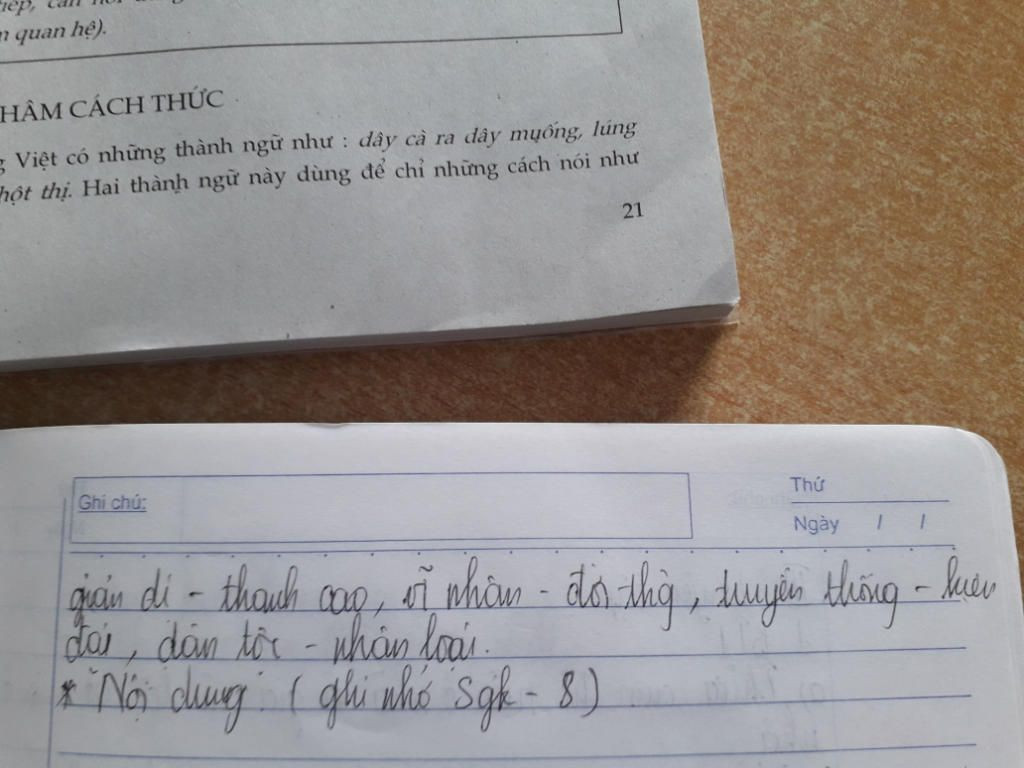 tiếp, cần nói đúng
n quan hệ).
HÂM CÁCH THỨC
g Việt có những thành ngữ như : dây cà ra dây muống, lúng
hột thị. Hai thành ngữ này dùng để chỉ những cách nói như
21
Ghi chú:
Thứ
Ngày / /
giản dị - thanh cao, vĩ nhân - đời thg, truyền thống - hiện
đại, dân tộc - nhân loại.
* Nội dung (ghi nhớ Sgk - 8)